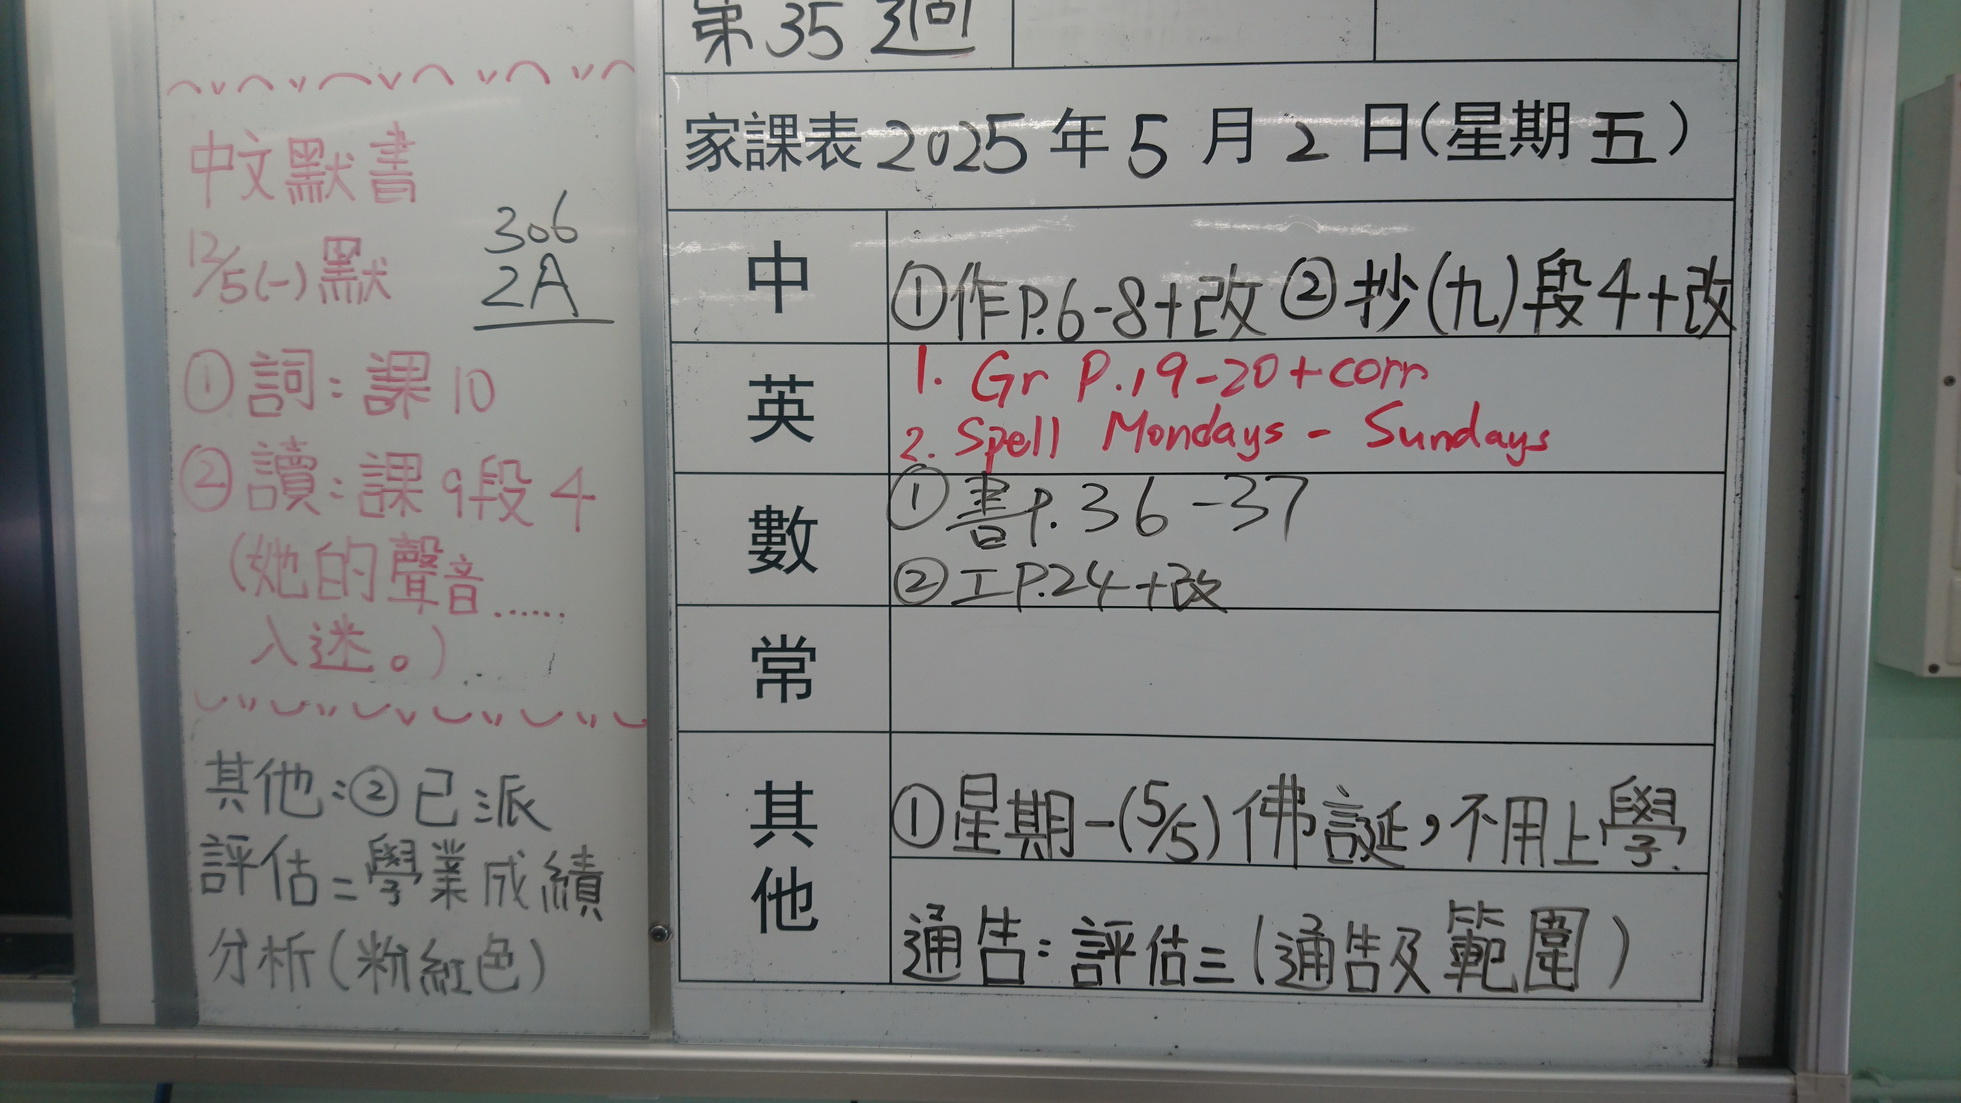 中文默書
12/5(一)默
306
2A
①詞：課10
②讀：課9段4
(她的聲音......
入迷。)
其他：②已派
評估二學業成績
分析(粉紅色)
第35週
家課表2025年5月2日(星期五)
中
①作P.6-8+改 ②抄(九)段4+改
英
1. Gr P.19-20+corr
2. Spell Mondays - Sundays
數
①書P.36-37
②工P.24+改
常
其他
①星期一(5/5)佛誕，不用上學.
通告：評估三(通告及範圍)